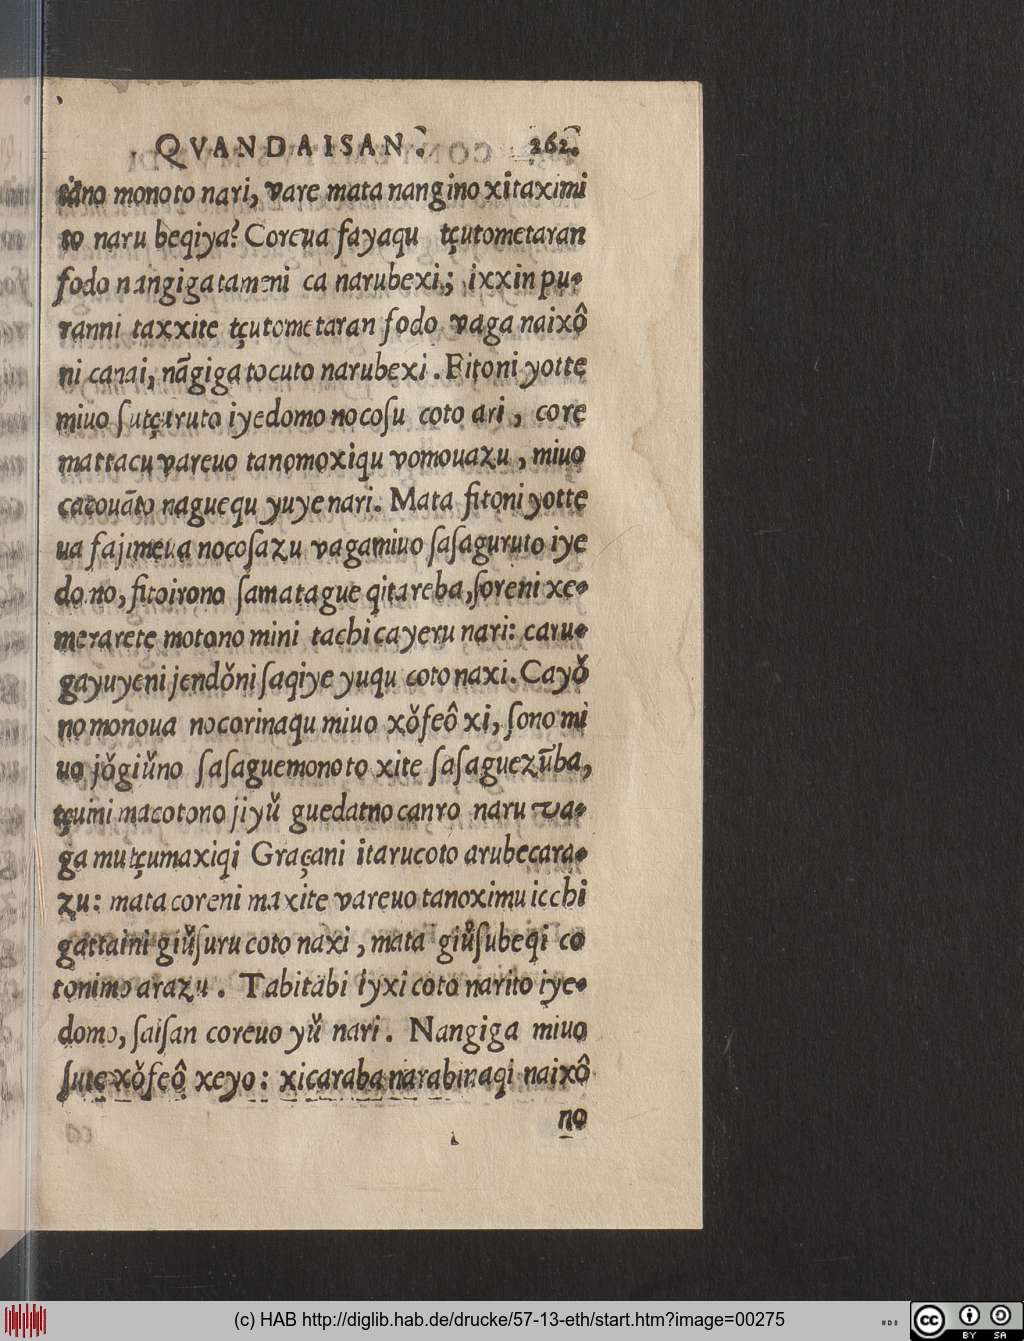 QVANDAISAN. 262.
tãno monoto nari, vare mata nangino xitaximi
to naru beqiya? Coreua fayaqu tçutometaran
fodo nangigatameni ca narubexi; ixxin pu-
ranni taxxite tçutometaran fodo vaga naixô
ni canai, nãgiga tocuto narubexi. Fitoni yotte
miuo ſutçuruto iyedomo nocoſu coto ari, core
mattacu vareuo tanomoxiqu vomouazu, miuo
catouãto naguequ yuye nari. Mata fitoni yotte
ua fajimeua nocoſazu vagamiuo ſaſaguruto iye
domo, fitoirono ſamatague qitareba, ſoreni xe-
merarete motono mini tachicayeru nari: caru-
gayuyeni jendǒni ſaqiye yuqu coto naxi. Cayǒ
no monoua nocorinaqu miuo xǒfeô xi, ſono mi
uo jǒgiǔno ſaſaguemonoto xite ſaſaguezũba,
tçuini macotono jiyǔ guedatno canro naru va-
ga mutçumaxiqi Graçani itarucoto arubecara-
zu: mata coreni maxite vareuo tanoximu icchi
gattaini giǔſuru coto naxi, mata giǔſubeqi co
tonimo arazu. Tabitabi iyxi coto narito iye-
domo, ſaiſan coreuo yǔ nari. Nangiga miuo
ſute xǒfeô xeyo: xicaraba narabinaqi naixô
no
(c) HAB http://diglib.hab.de/drucke/57-13-eth/start.htm?image=00275
cc BY SA